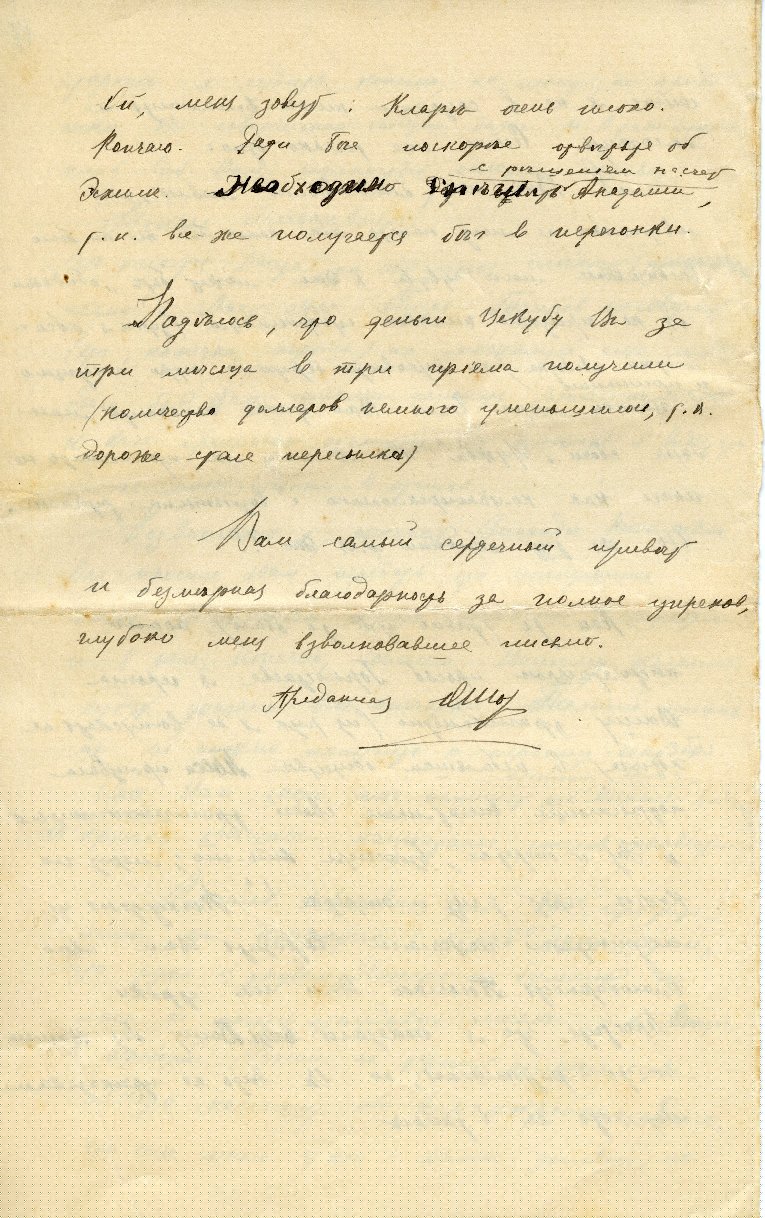 Ей, меня зовут: Кларе очень плохо.
Кончаю. Ради Бога поскорее ответьте об
с решением насчет
Необходимо Академии,
т.к. все же получается бег в перегонки.
Надѣюсь, что деньги Цекубу Вы за
три мѣсяца в три прiема получили
(количество долларов немного уменьшилось, т.к.
дороже стала пересылка)
Вам самый сердечный привѣт
и безмѣрная благодарность за полное упреков,
глубоко меня взволновавшее письмо.
Преданная